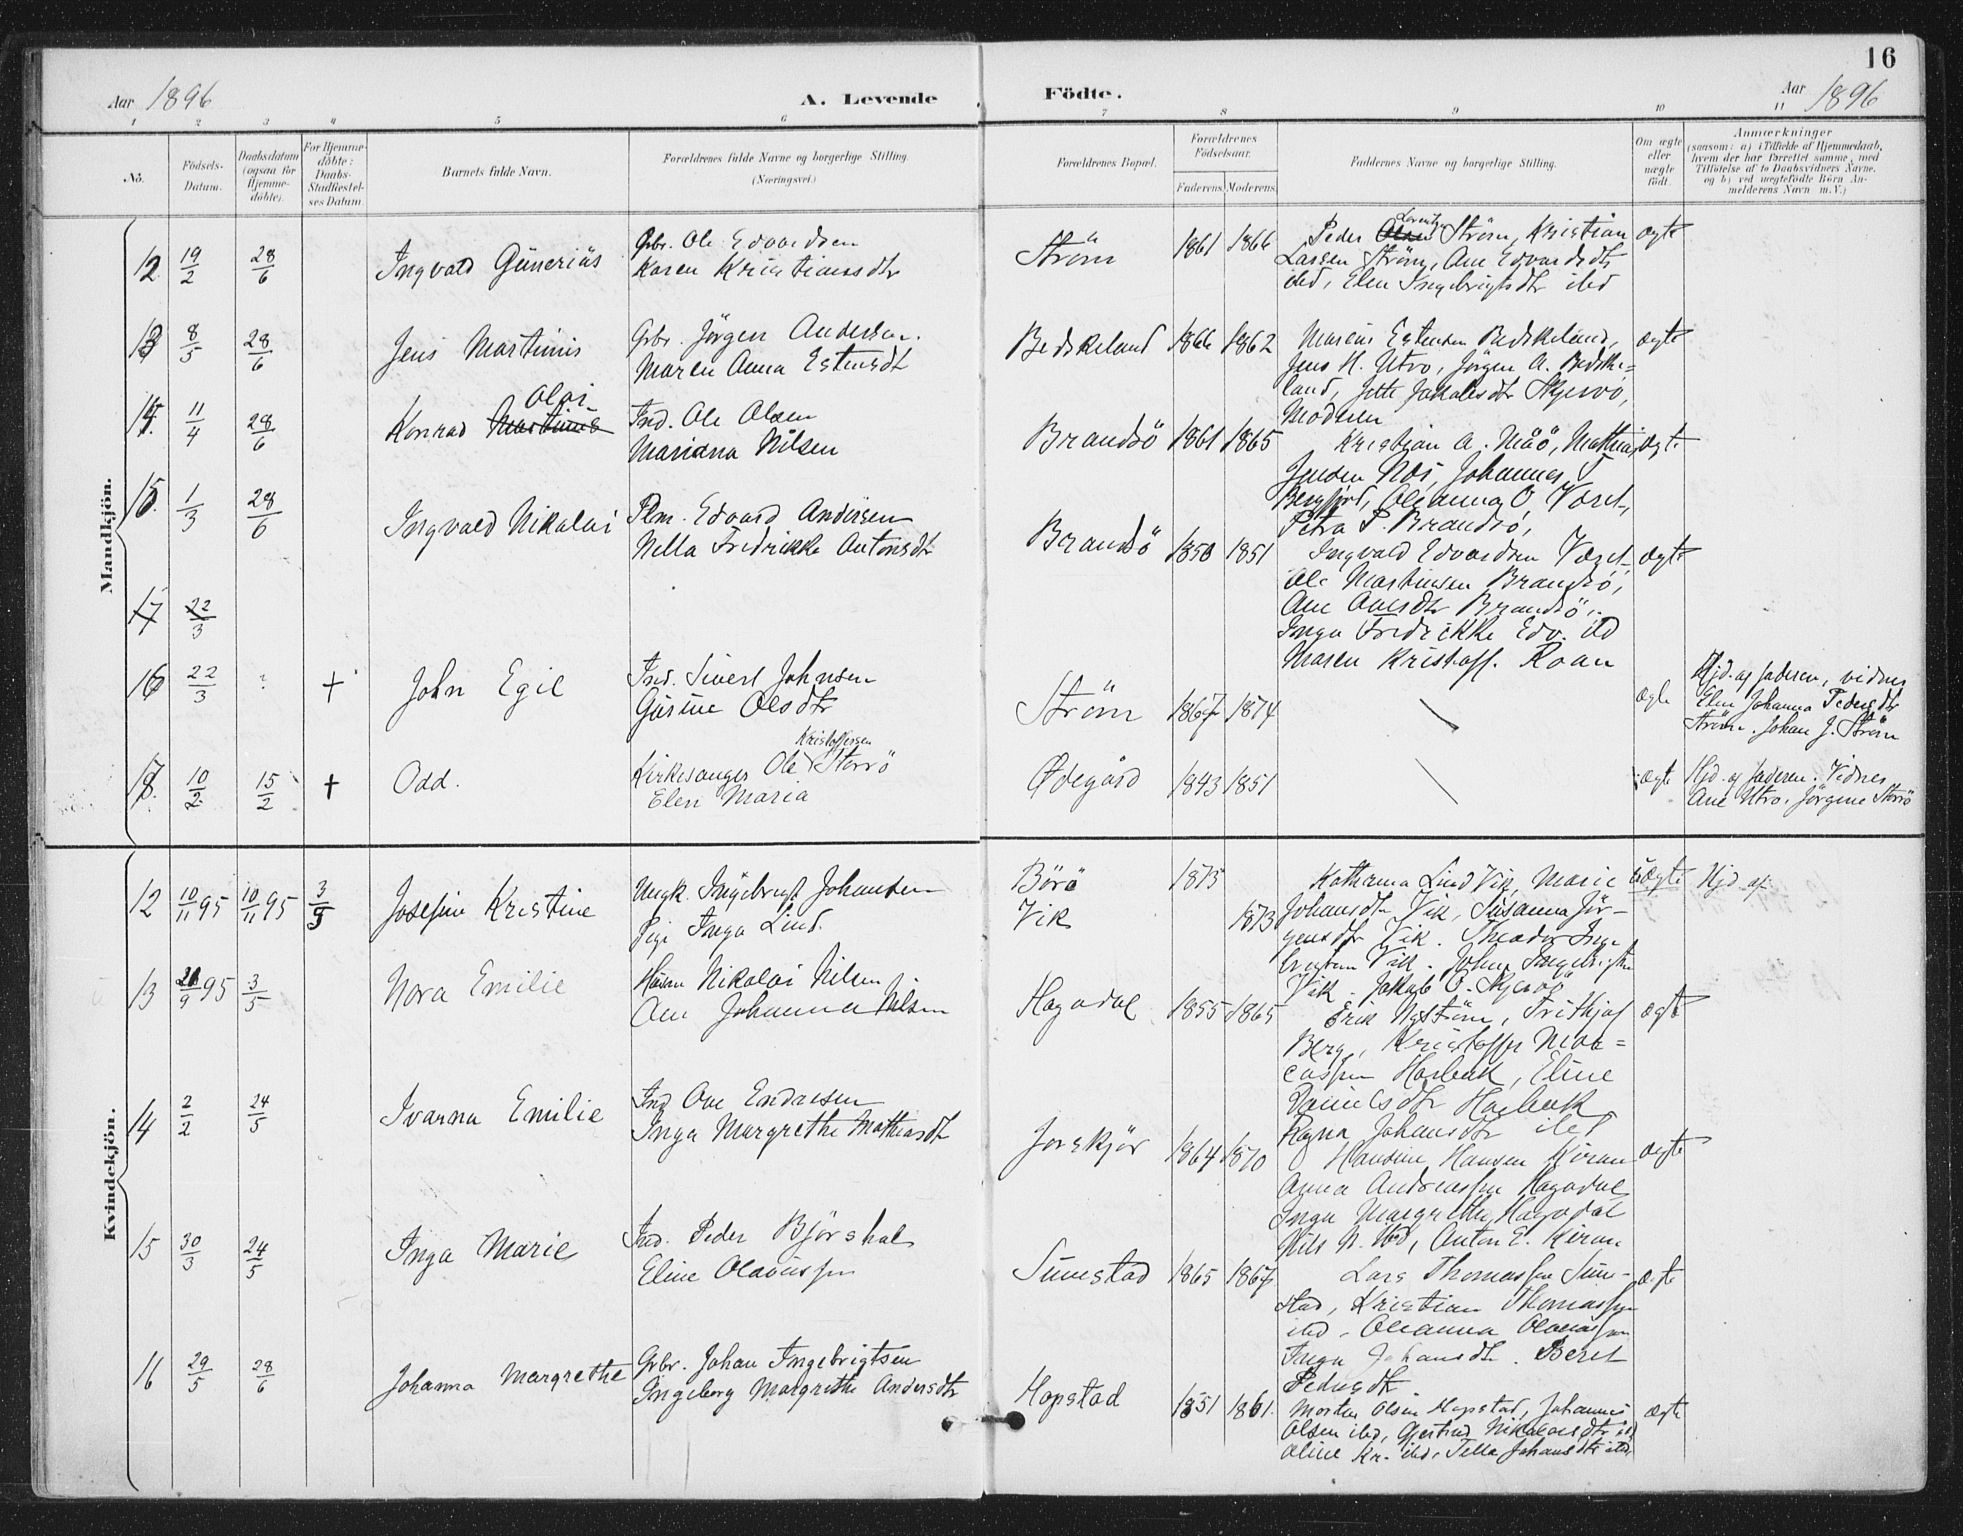 16
Aar 1896
A. Levende
Födte.
Aar 1896
1 2 3 4 5 6 7 8 9 10 11
No.
Födsels-
Datum.
Daabsdatum
(ogsaa for
Hjemme-
döbte).
For Hjemme-
döbte:
Daabs-
Stadfæstel-
ses Datum.
Barnets fulde Navn.
Forældrenes fulde Navne og borgerlige Stilling.
(Næringsvei.)
Forældrenes Bopæl.
Forældrenes
Födselsaar.
Faderens. Moderens.
Faddernes Navne og borgerlige Stilling.
Om ægte
eller
uægte
födt.
Anmærkninger
(saasom: a) i Tilfælde af Hjemmedaab,
hvem der har forrettet samme, med
Tilföielse af to Daabsvidners Navne,
og b) ved uægtefödte Börn An-
melderens Navn m. V.)
Mandkjön.
12 19/2 28/6 Ingvald Gunerius
Gbr. Ole Edvardsen
Karen Kristiansdtr
Ström 1861 1866
Lorentz
Peder Ström, Kristian
Larsen Ström, Ane Edvardsdtr
ibd, Elen Ingebrigtsdtr ibd
ægte
13 8/5 28/6 Jens Martinus
Gbr. Jörgen Andersen.
Maren Anna Estensdtr
Bedskeland 1866 1862
Marius Estensen Bedskeland,
Jens H. Utvo, Jörgen A. Bedske-
land, Jette Jakobsdtr Skjervö,
Moderen
ægte
14 11/4 28/6 Konrad Martinus Olai
Ind. Ole Olsen
Mariana Nilsen
Brandsö 1861 1865
Kristian A. Måö, Mathias
Jensen Næs, Johannes T
Bergfjord, Oleanna O. Været,
Petra P. Brandsö,
ægte
15 1/3 28/6 Ingvald Nikolai
Plm. Edvard Andersen
Nella Fredrikke Antonsdtr
Brandsö 1850 1851
Ingvald Edvardsen Været
Ole Martinsen Brandsö,
Ane Anesdtr Brandsö,
Inga Fredrikke Edv. ibd
Maren Kristoff. Roan
ægte
17 22/3
16 22/3 + John Egil
Ind. Sivert Johnsen
Gusine Olsdtr
Ström 1867 1874
ægte
Hjd. af faderen, vidner
Elen Johanna Pedersdtr
Ström. Johan J. Ström
17 10/2 15/2 + Odd.
Kristoffersen
Kirkesanger Ole Storrö
Elen Maria
Ødegård 1843 1851
ægte
Hjd. af faderen. Vidner
Ane Utvo. Jörgine Storrö
Kvindekjön.
12 10/11 95 10/11 95 3/5 Josefine Kristine
Ungk. Ingebrigt Johansen
Pige Inga Lind.
Börö 1875
Vik 1873
Katharina Lind Vik, Marie
Johansdtr Vik, Susanna Jör-
gensdtr Vik. Theodor Inge
brigtsen Vik. Johan Ingebrigtsen
Vik. Jakob O. Skjervö
uægte
Hjd. af
13 26/9 95 3/5 Nora Emilie
Husm Nikolai Nilsen
Ane Johanna Nilsen
Hagadal 1855 1865
Erik Nyström, Frithjof
Berg, Kristoffer Mar-
cussen Harbak, Eline
Danielsdtr Harbak
Ragna Johansdtr ibd
ægte
14 2/2 24/5 Ivarna Emilie
Ind Ove Endresen
Inga Margrethe Mathiasdtr
Jörskjör 1864 1870
Hansine Hansen Kiran
Anna Andreassen Hagadal
Inga Margrethe Hagadal
Nils N. ibd, Anton E. Kiran
ægte
15 30/3 24/5 Inga Marie
Ind. Peder Björshol
Eline Olaussen
Sumstad 1865 1867
Lars Thomassen Sum-
stad, Kristian Thomassen
ibd. Oleanna Olaussen
Inga Johansdtr. Beret
Pedersdtr
ægte
16 29/5 28/6 Johanna Margrethe
Gbr. Johan Ingebrigtsen
Ingeborg Margrethe Andersdtr
Hopstad 1851 1861.
Morten Olsen Hopstad, Johannes
Olsen ibd, Gjertrud Nikolaisdtr ibd
Oline Kr. ibd, Tella Johansdtr ibd,
ægte